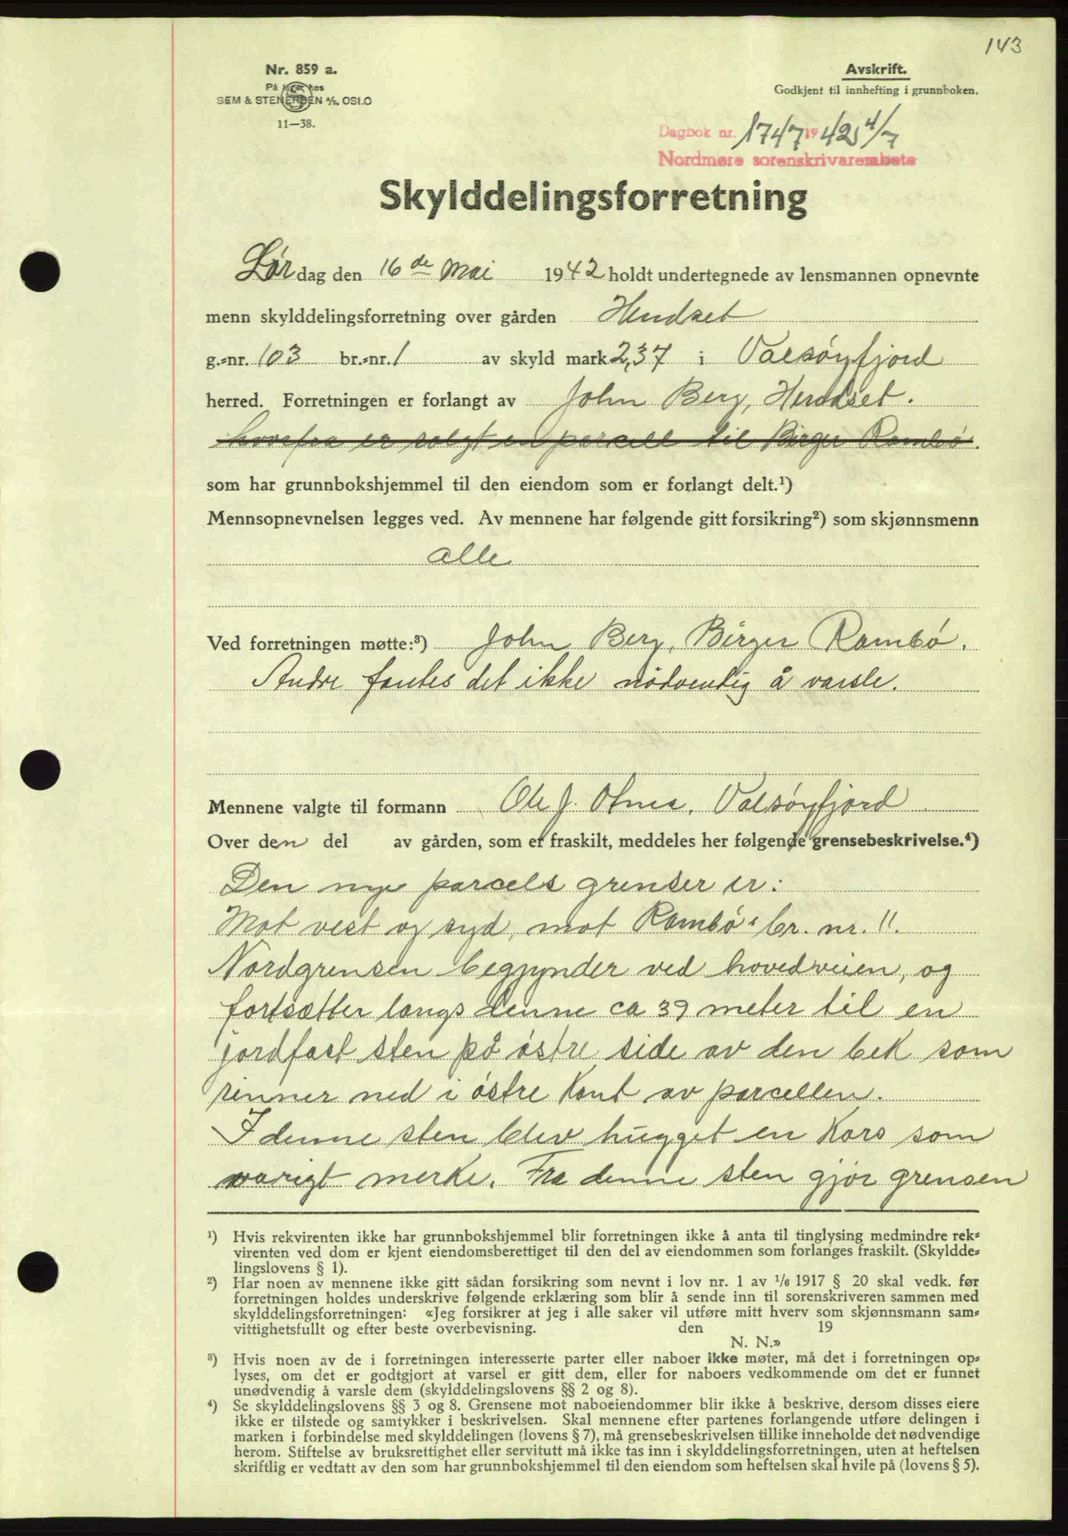 143
Nr. 859 a.
På lager hos
SEM & STENERSEN A/S, OSLO
11—38.
Avskrift.
Godkjent til innhefting i grunnboken.
Dagbok nr. 1747 1942 4/7
Nordmøre sorenskrivarembete
Skylddelingsforretning
Lør dag den 16de Mai 1942 holdt undertegnede av lensmannen opnevnte
menn skylddelingsforretning over gården Hendset
g.-nr. 103 br.-nr. 1 av skyld mark 2,37 i Valsøyfjord
herred. Forretningen er forlangt av John Berg, Hendset.
hvorfra er solgt en parcell til Birger Rambø.
som har grunnbokshjemmel til den eiendom som er forlangt delt.¹)
Mennsopnevnelsen legges ved. Av mennene har følgende gitt forsikring²) som skjønnsmenn
alle
Ved forretningen møtte:³) John Berg, Birger Rambø.
Andre fantes det ikke nödvendig å varsle.
Mennene valgte til formann Ole J. Otnes, Valsøyfjord
Over den del av gården, som er fraskilt, meddeles her følgende grensebeskrivelse.⁴)
Den nye parcels grenser er:
Mot vest og syd, mot Rambø's br. nr. 11.
Nordgrensen begynder ved hovedveien, og
fortsætter langs denne ca 39 meter til en
jordfast sten på östre side av den bek som
rinner ned i östre Kant av parcellen.
I denne sten blev hugget en Kors som
varigt merke. Fra denne sten gjör grensen
¹) Hvis rekvirenten ikke har grunnbokshjemmel blir forretningen ikke å anta til tinglysing medmindre rek-
virenten ved dom er kjent eiendomsberettiget til den del av eiendommen som forlanges fraskilt. (Skyldde-
lingslovens § 1).
²) Har noen av mennene ikke gitt sådan forsikring som nevnt i lov nr. 1 av 1/6 1917 § 20 skal vedk. før
forretningen holdes underskrive følgende erklæring som blir å sende inn til sorenskriveren sammen med
skylddelingsforretningen: «Jeg forsikrer at jeg i alle saker vil utføre mitt hverv som skjønnsmann sam-
vittighetsfullt og efter beste overbevisning. den 19
N. N.»
³) Hvis noen av de i forretningen interesserte parter eller naboer ikke møter, må det i forretningen op-
lyses, om det er godtgjort at varsel er gitt dem, eller for naboers vedkommende om det er funnet
unødvendig å varsle dem (skylddelingslovens §§ 2 og 8).
⁴) Se skylddelingslovens §§ 3 og 8. Grensene mot naboeiendommer blir ikke å beskrive, dersom disses eiere
ikke er tilstede og samtykker i beskrivelsen. Skal mennene efter partenes forlangende utføre delingen i
marken i forbindelse med skylddelingen (lovens § 7), må grensebeskrivelsen tillike inneholde det nødvendige
herom. Stiftelse av bruksrettighet eller servitutt må ikke tas inn i skylddelingsforretningen, uten at heftelsen
skriftlig er vedtatt av den som har grunnbokshjemmel til den eiendom som heftelsen skal hvile på (lovens § 5).